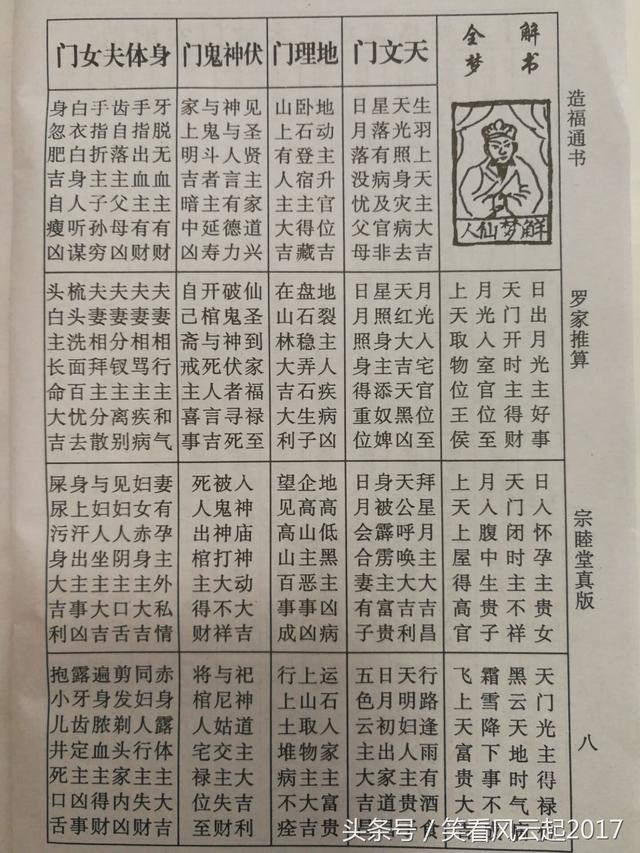 解书
全梦
解梦仙人
造福通书
罗家推算
宗睦堂真版
八
日出月光主好事
天门开时主得财
月光入室官位至
上天取物位王侯
日入怀孕主贵女
天门闭时主不祥
月入腹中生贵子
上天上屋得高官
天门光主得禄
黑云天地时气
霜雪降下事不
飞上天富贵大
天文门
生羽上天主大吉
天光照身灾病去
星落有病及官非
日月落没忧父母
月光人宅官位至
天红大吉天黑凶
星照月主添奴婢
日月照身得重权
拜星月主大吉昌
天公呼唤大吉利
身被霹雳主富贵
日月会合妻有子
行路逢雨有酒食
天明妇人主贵
日月初出家道
五色云主大吉
地理门
地动主升官位吉
卧石登宿主得藏
山上有人主大吉
地裂主人疾病凶
盘石稳弄石生子
在山林大吉大利
地高低黑主凶病
企高山主恶事凶
望见高山百事成
运石入家主富贵
上山取物主大吉
行上土堆病不痊
伏神鬼门
见圣贤主家道兴
神与人言有德力
与鬼斗者主延寿
家上明吉暗中凶
仙圣到家福禄至
破鬼神伏者寻死
开棺与死人言吉
自己斋戒主喜事
入神庙神动大吉
被鬼神打大不祥
死人出棺主得财
祀神道主大吉利
与尼姑交主失财
将棺人宅禄位至
身体夫女门
牙脱无血主有财
手指出血主有财
齿自落主父母凶
手指折主子孙穷
白衣白身人听谋
身忽肥吉自瘦凶
夫妻相行主和气
夫妻相骂主疾病
夫妻分钗主离别
夫妻相拜主分散
梳头洗面百忧去
头白主长命大吉
妻有孕主外私情
妇女赤身主大吉
见妇人阴主口舌
与妇人坐主大吉
身上汗出主事凶
屎尿污身大吉利
赤身露体主大吉
同妇人行主失财
剪发剃头家内凶
遍身脓血主得财
露牙齿定主凶事
抱小儿井死口舌
头条号 / 笑看风云起2017